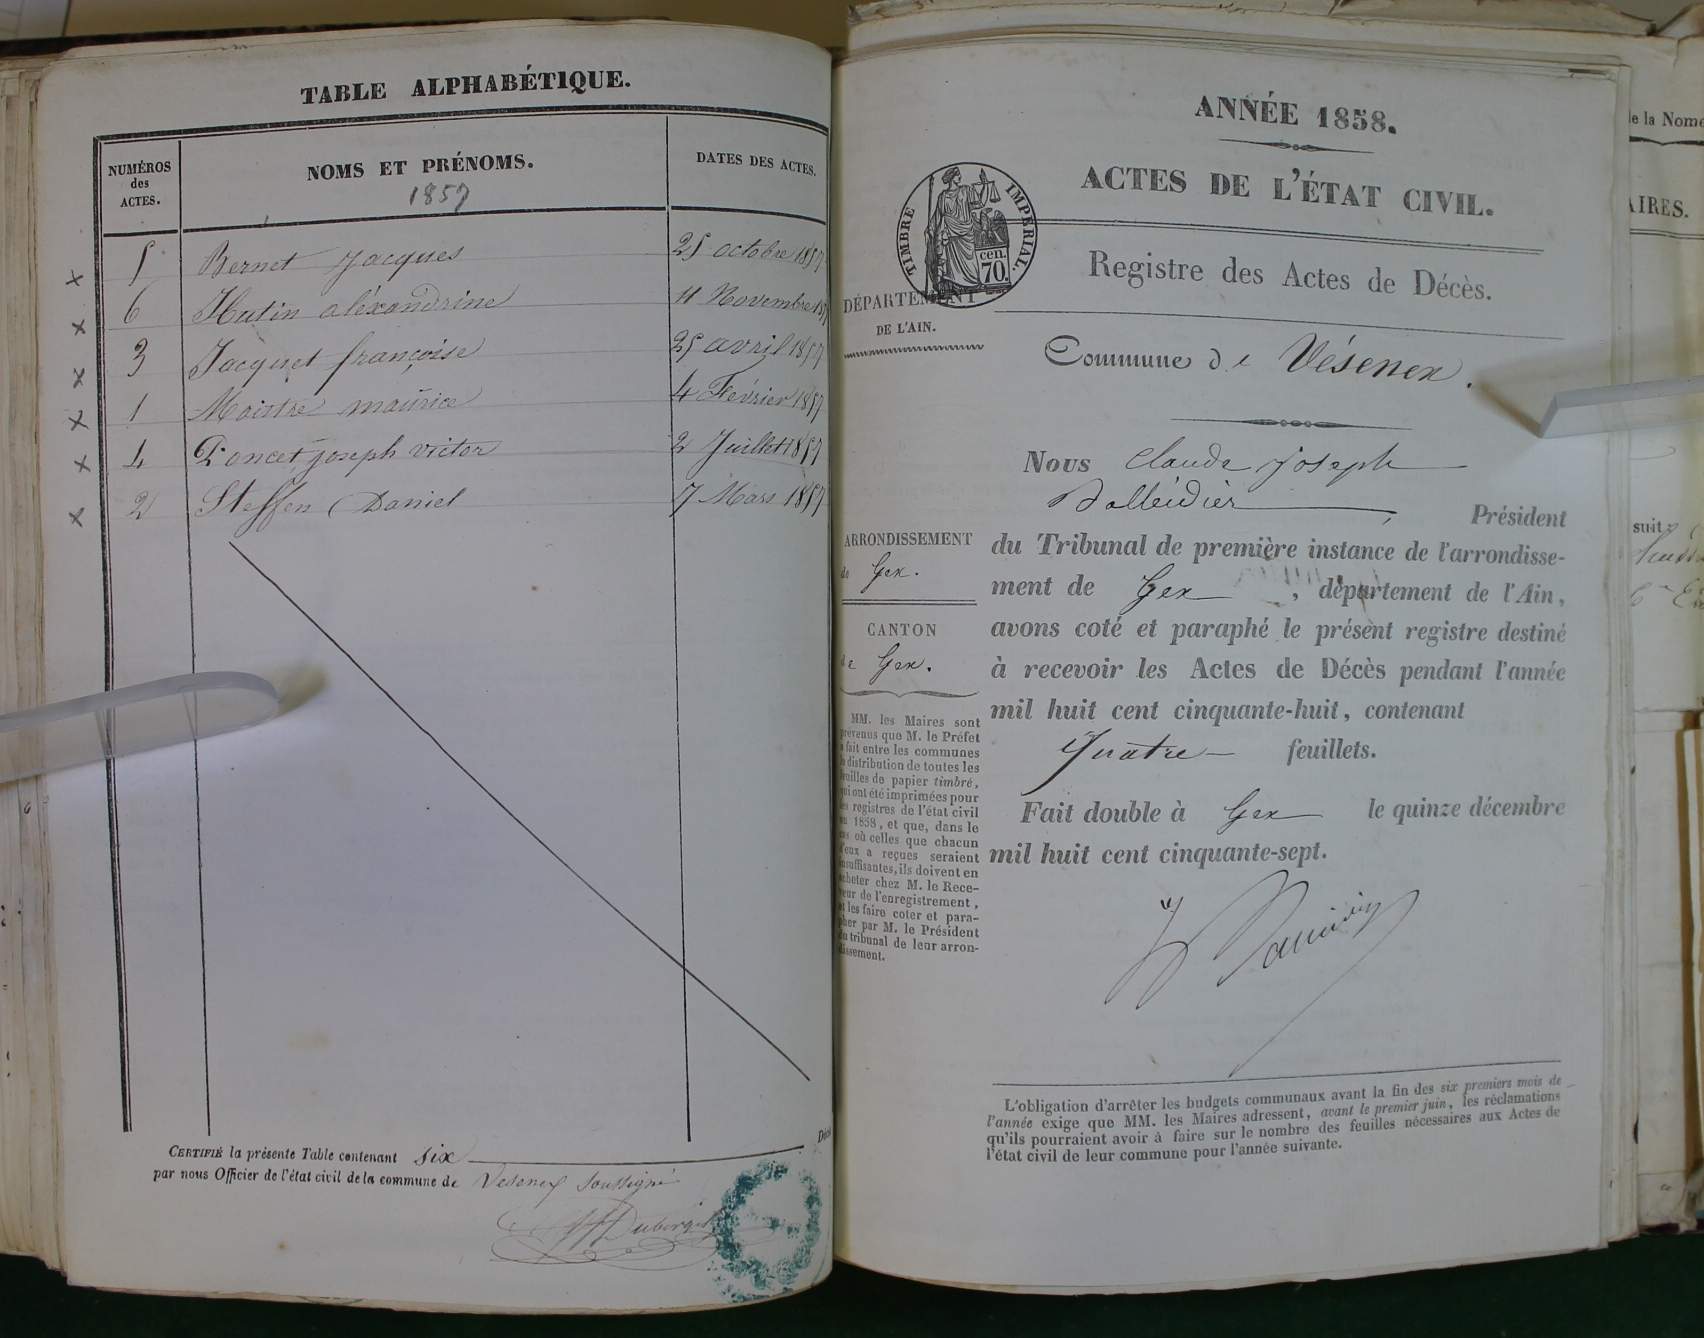 TABLE ALPHABÉTIQUE.
NUMÉROS des ACTES.
NOMS ET PRÉNOMS.
1857
DATES DES ACTES.
5 Bernet Jacques 25 octobre 1857
6 Hutin alexandrine 11 Novembre 1857
3 Jacquet françoise 25 avril 1857
1 Maistre maurice 4 Février 1857
4 Poncet joseph victor 2 Juillet 1857
2 Steffen Daniel 7 Mars 1857
CERTIFIÉ la présente Table contenant six
par nous Officier de l'état civil de la commune de Vesenex soussigné
ANNÉE 1858.
ACTES DE L'ÉTAT CIVIL.
TIMBRE IMPÉRIAL.
cen.
70.
Registre des Actes de Décès.
DÉPARTEMENT
DE L'AIN.
Commune de Vésenex.
Nous Claude Joseph
Président
du Tribunal de première instance de l'arrondisse-
ment de Gex, département de l'Ain,
avons coté et paraphé le présent registre destiné
à recevoir les Actes de Décès pendant l'année
mil huit cent cinquante-huit, contenant
Quatre feuillets.
Fait double à Gex le quinze décembre
mil huit cent cinquante-sept.
ARRONDISSEMENT
de Gex.
CANTON
de Gex.
MM. les Maires sont
prévenus que M. le Préfet
a fait entre les communes
la distribution de toutes les
feuilles de papier timbré,
qui ont été imprimées pour
les registres de l'état civil
en 1858, et que, dans le
cas où celles que chacun
d'eux a reçues seraient
insuffisantes, ils doivent en
acheter chez M. le Rece-
veur de l'enregistrement,
et les faire coter et para-
pher par M. le Président
du tribunal de leur arron-
dissement.
L'obligation d'arrêter les budgets communaux avant la fin des six premiers mois de
l'année exige que MM. les Maires adressent, avant le premier juin, les réclamations
qu'ils pourraient avoir à faire sur le nombre des feuilles nécessaires aux Actes de
l'état civil de leur commune pour l'année suivante.
de la Nome
AIRES.
suit